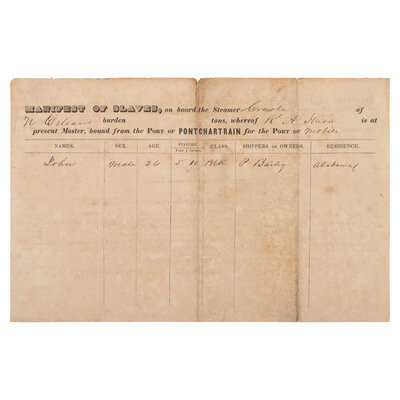 MANIFEST OF SLAVES, on board the Steamer Creole of
N Orleans burden tons, whereof R A Hiern is at
present Master, bound from the PORT OF PONTCHARTRAIN for the PORT OF Mobile
NAMES. SEX. AGE. STATURE Feet | Inches CLASS, SHIPPERS or OWNERS. RESIDENCE.
John Male 26 5 10 Blk P Bailey Alabama